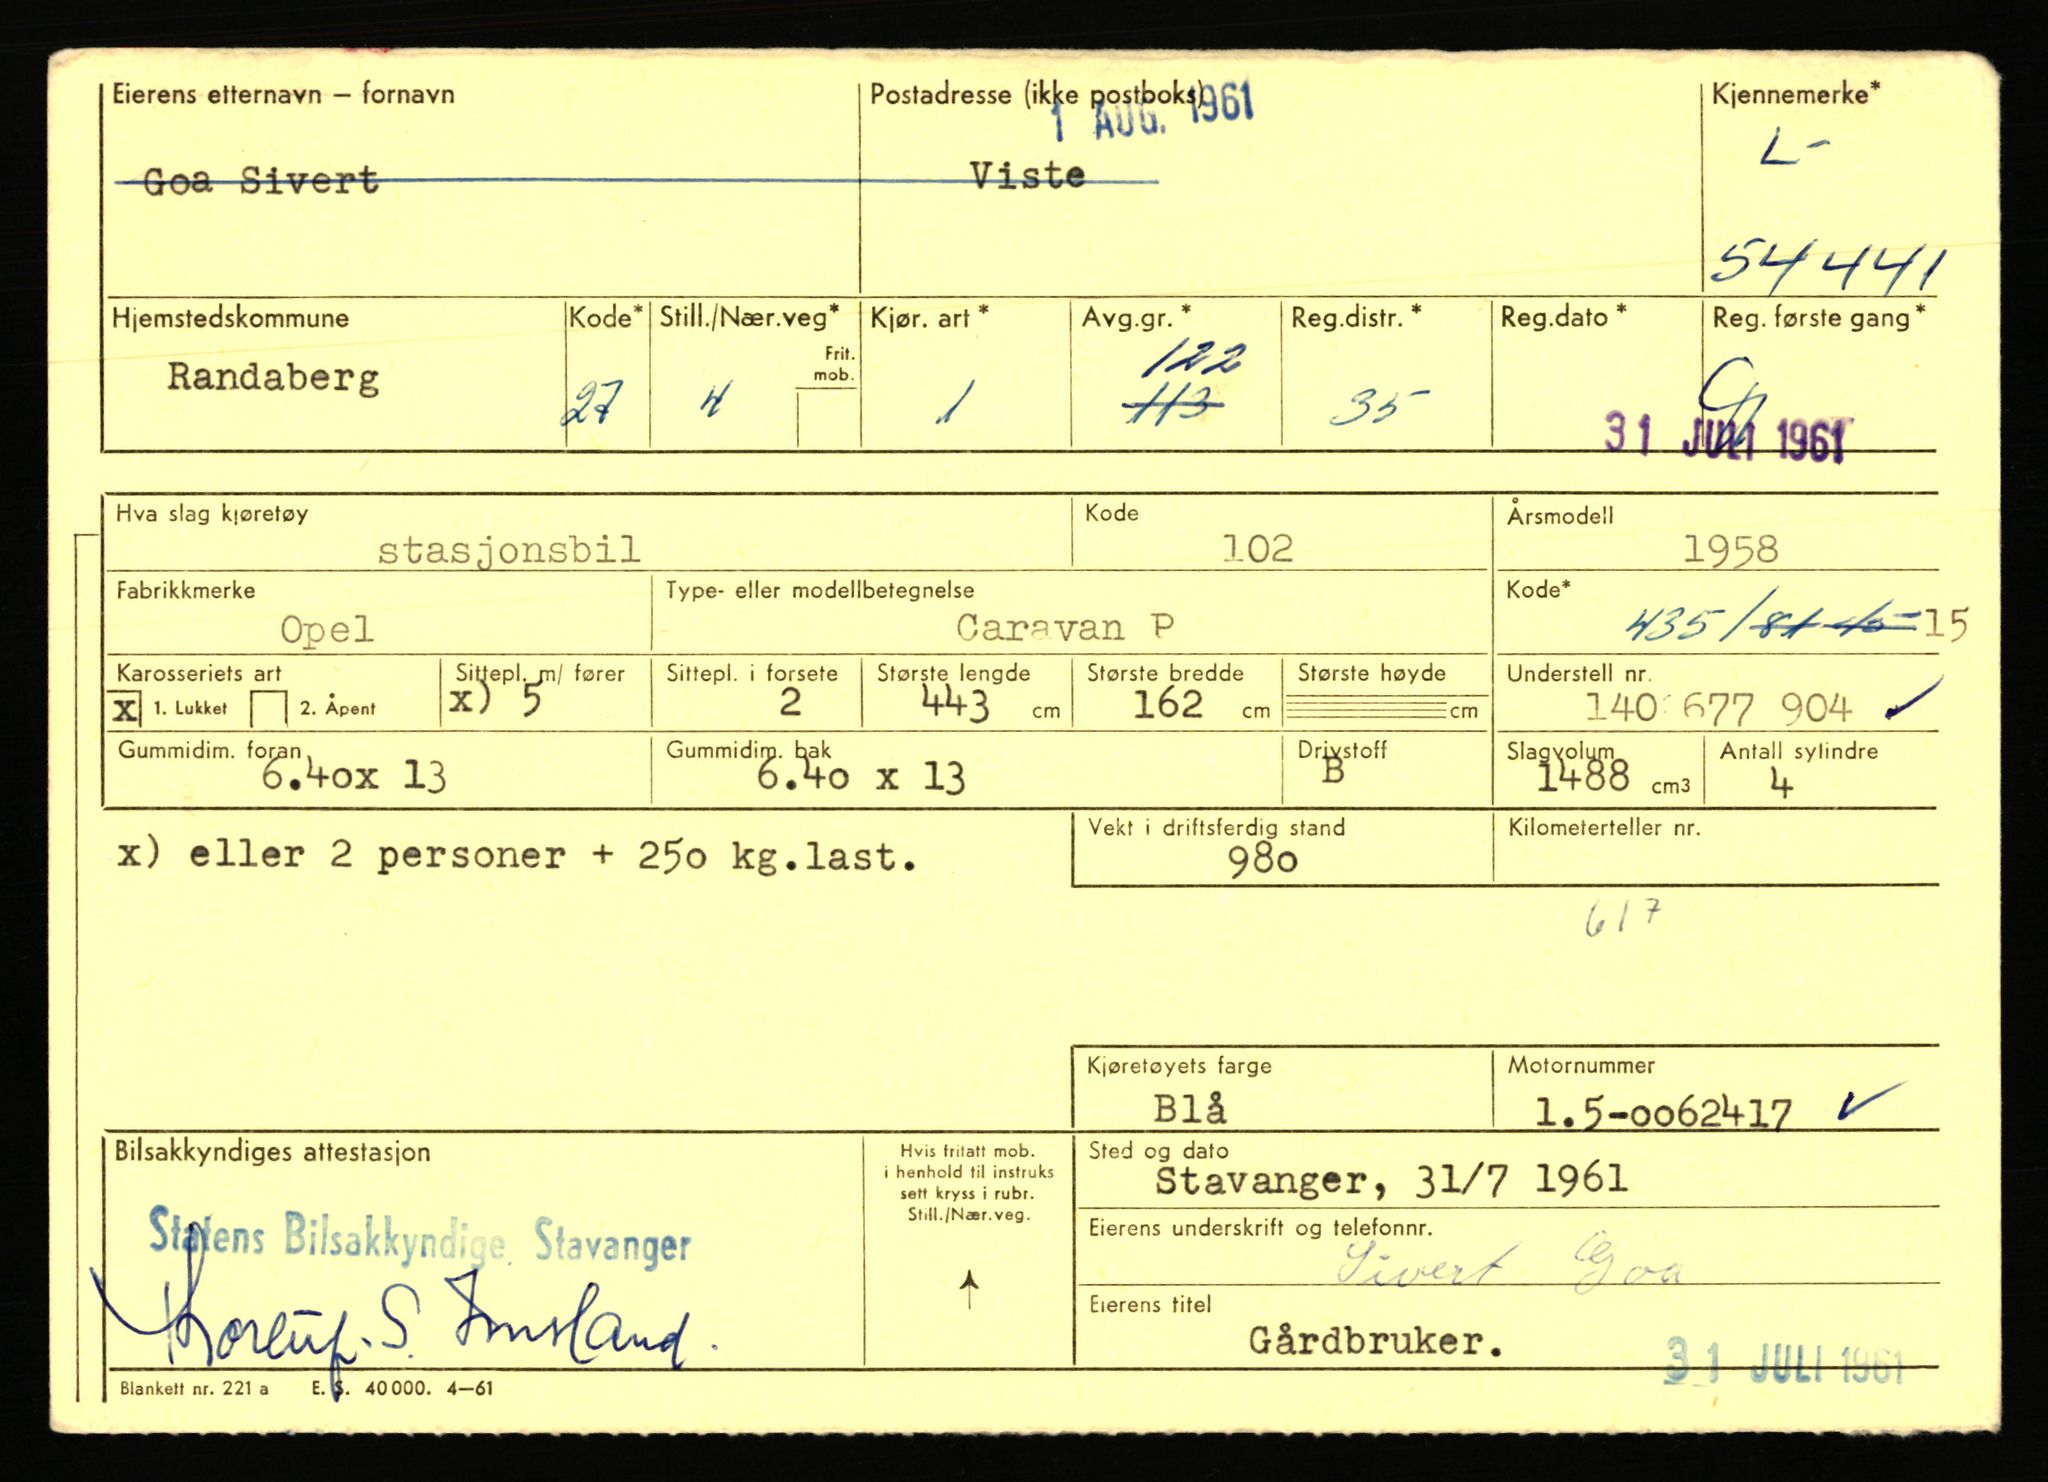 Eierens etternavn – fornavn
Postadresse (ikke postboks)
Kjennemerke*
1 AUG. 1961
L-
Goa Sivert
Viste
54441
Hjemstedskommune
Kode*
Still./Nær.veg*
Kjør. art *
Avg.gr. *
Reg.distr. *
Reg.dato *
Reg. første gang *
Frit. mob.
122
Randaberg
27
4
1
113
35
31 JULI 1961
Hva slag kjøretøy
Kode
Årsmodell
stasjonsbil
102
1958
Fabrikkmerke
Type- eller modellbetegnelse
Kode*
Opel
Caravan P
435/ 15
Karosseriets art
Sittepl. m/ fører
Sittepl. i forsete
Største lengde
Største bredde
Største høyde
Understell nr.
X 1. Lukket 2. Åpent
x) 5
2
443 cm
162 cm
cm
140 677 904 ✓
Gummidim. foran
Gummidim. bak
Drivstoff
Slagvolum
Antall sylindre
6.40x 13
6.40 x 13
B
1488 cm3
4
x) eller 2 personer + 250 kg.last.
Vekt i driftsferdig stand
Kilometerteller nr.
980
617
Kjøretøyets farge
Motornummer
Blå
1.5-0062417 ✓
Bilsakkyndiges attestasjon
Hvis fritatt mob.
i henhold til instruks
sett kryss i rubr.
Still./Nær.veg.
Sted og dato
Stavanger, 31/7 1961
Statens Bilsakkyndige, Stavanger
Eierens underskrift og telefonnr.
Sivert Goa
S. Imsland.
Eierens titel
Gårdbruker.
31 JULI 1961
Blankett nr. 221 a E. S. 40 000. 4–61